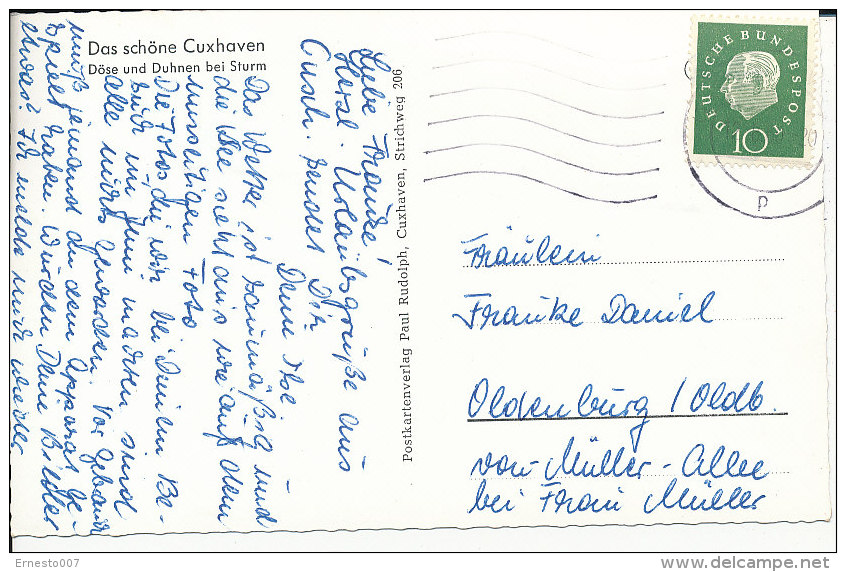 Das schöne Cuxhaven
Döse und Duhnen bei Sturm
Liebe Frauke!
Herzl. Urlaubsgrüße aus
Cuxh. sendet Dir
Deine Ilse
Das Wetter ist saumäßig und
die See sieht aus wie auf dem
umseitigen Foto
Die Fotos, die wir bei Deinem Be-
such im Juni machten sind
alle nichts geworden. Vor Gebrauch
muß jemand an dem Apparat ge-
spielt haben. Wurden Deine Bilder
etwas? Ich melde mich wieder.
Postkartenverlag Paul Rudolph, Cuxhaven, Strichweg 206
DEUTSCHE BUNDESPOST
10
p
Fräulein
Frauke Daniel
Oldenburg / Oldb.
von-Müller-Allee
bei Frau Müller
Ernesto007
delcampe.net